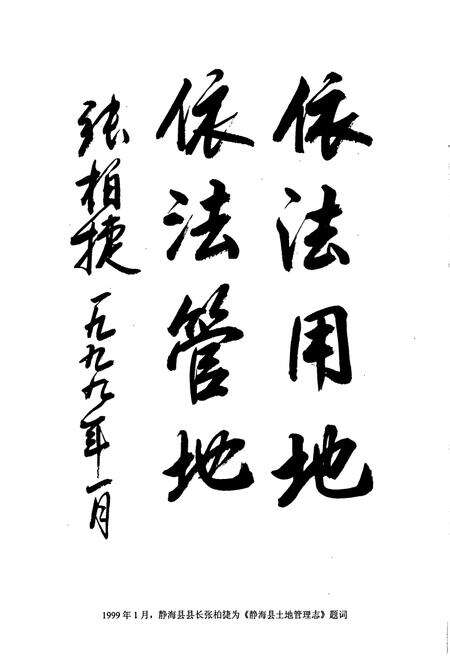 依法用地
依法管地
张柏捷
一九九九年一月
1999 年 1 月，静海县县长张柏捷为《静海县土地管理志》题词